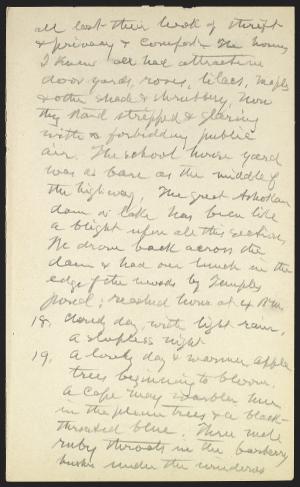 all lost their look of thrift
& privacy & comfort. The homes
I knew all had attractive
door yards, roses, lilacs, maples
& other shade & shrubbery, now
they stand stripped & glaring
with a forbidding public
air. The school house yard
was as bare as the middle of
the highway. The great Ashokan
dam or lake has been like
a blight upon all this section.
We drove back across the
dam & had our lunch in the
edge of the woods by Temples
pond; reached home at 4 P.M.
18. Cloudy day with light rain,
a sleepless night
19. A lovely day & warmer, apple
trees beginning to bloom.
A Cape May warbler here
in the plum trees & a black-
throated blue. Three male
ruby throats in the barberry
bushes under the windows